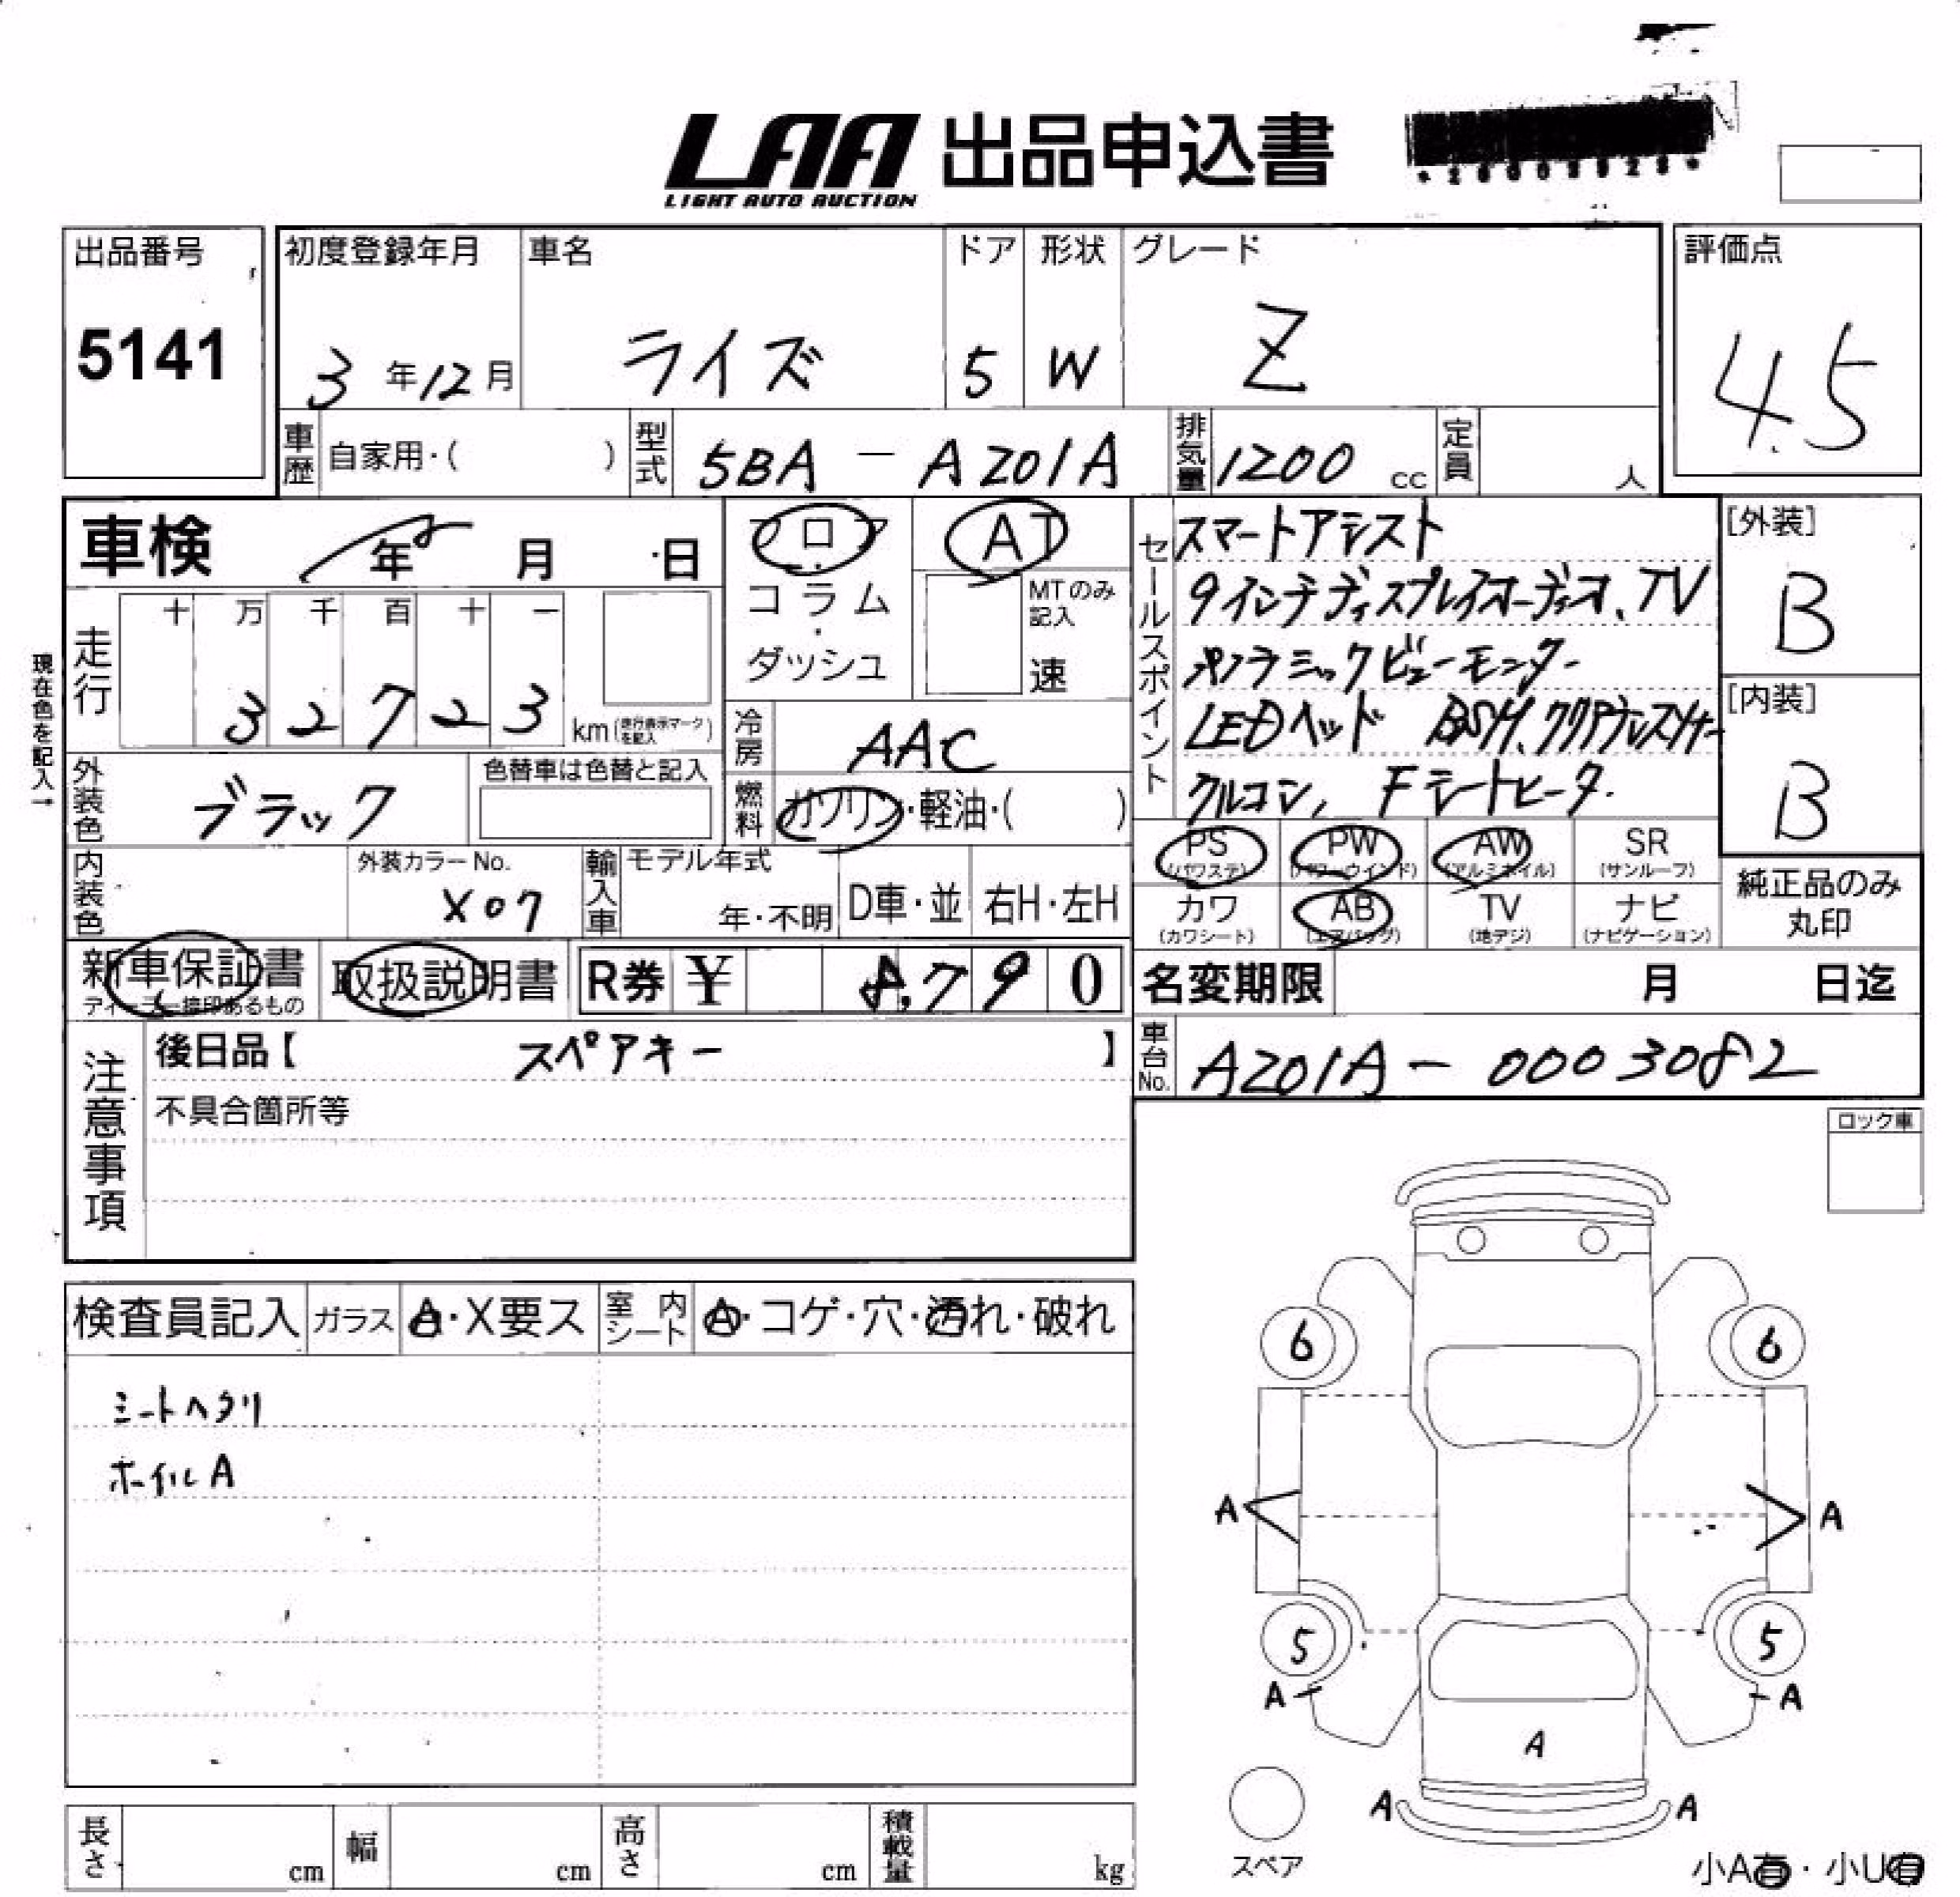 LAA 出品申込書
LIGHT AUTO AUCTION
出品番号 初度登録年月 車名 ドア 形状 グレード 評価点
5141 3年12月 ライズ 5 W Z 4.5
車歴 自家用・( ) 型式 5BA - A201A 排気量 1200 cc 定員 人
車検 年 月 日
フロア
コラム
・
ダッシュ
AT
MTのみ記入
速
現在色を記入→
走行 十 万 千 百 十 一
3 2 7 2 3 km (走行表示マークを記入)
冷房 AAC
燃料 ガソリン・軽油・( )
外装色 ブラック 色替車は色替と記入
内装色 外装カラーNo. X07
輸入車 モデル年式 年・不明 D車・並 右H・左H
セールスポイント
スマートアシスト
9インチディスプレイオーディオ、TV
パノラミックビューモニター
LEDヘッド BSM、
クルコン、Fシートヒーター
[外装] B
[内装] B
PS (パワステ) PW (パワーウインド) AW (アルミホイル) SR (サンルーフ)
カワ (カワシート) AB (エアバッグ) TV (地デジ) ナビ (ナビゲーション)
純正品のみ丸印
新車保証書 ディーラー捺印あるもの 取扱説明書 R券 ¥ 8,790
名変期限 月 日迄
注意事項
後日品【 スペアキー 】
不具合箇所等
車台No. A201A - 0003082
ロック車
検査員記入 ガラス A・X要ス 室内シート A・コゲ・穴・汚れ・破れ
シートヘタリ
ホイルA
6 6
A A
5 5
A A
A
A A
スペア
長さ cm 幅 cm 高さ cm 積載量 kg
小A有・小U有